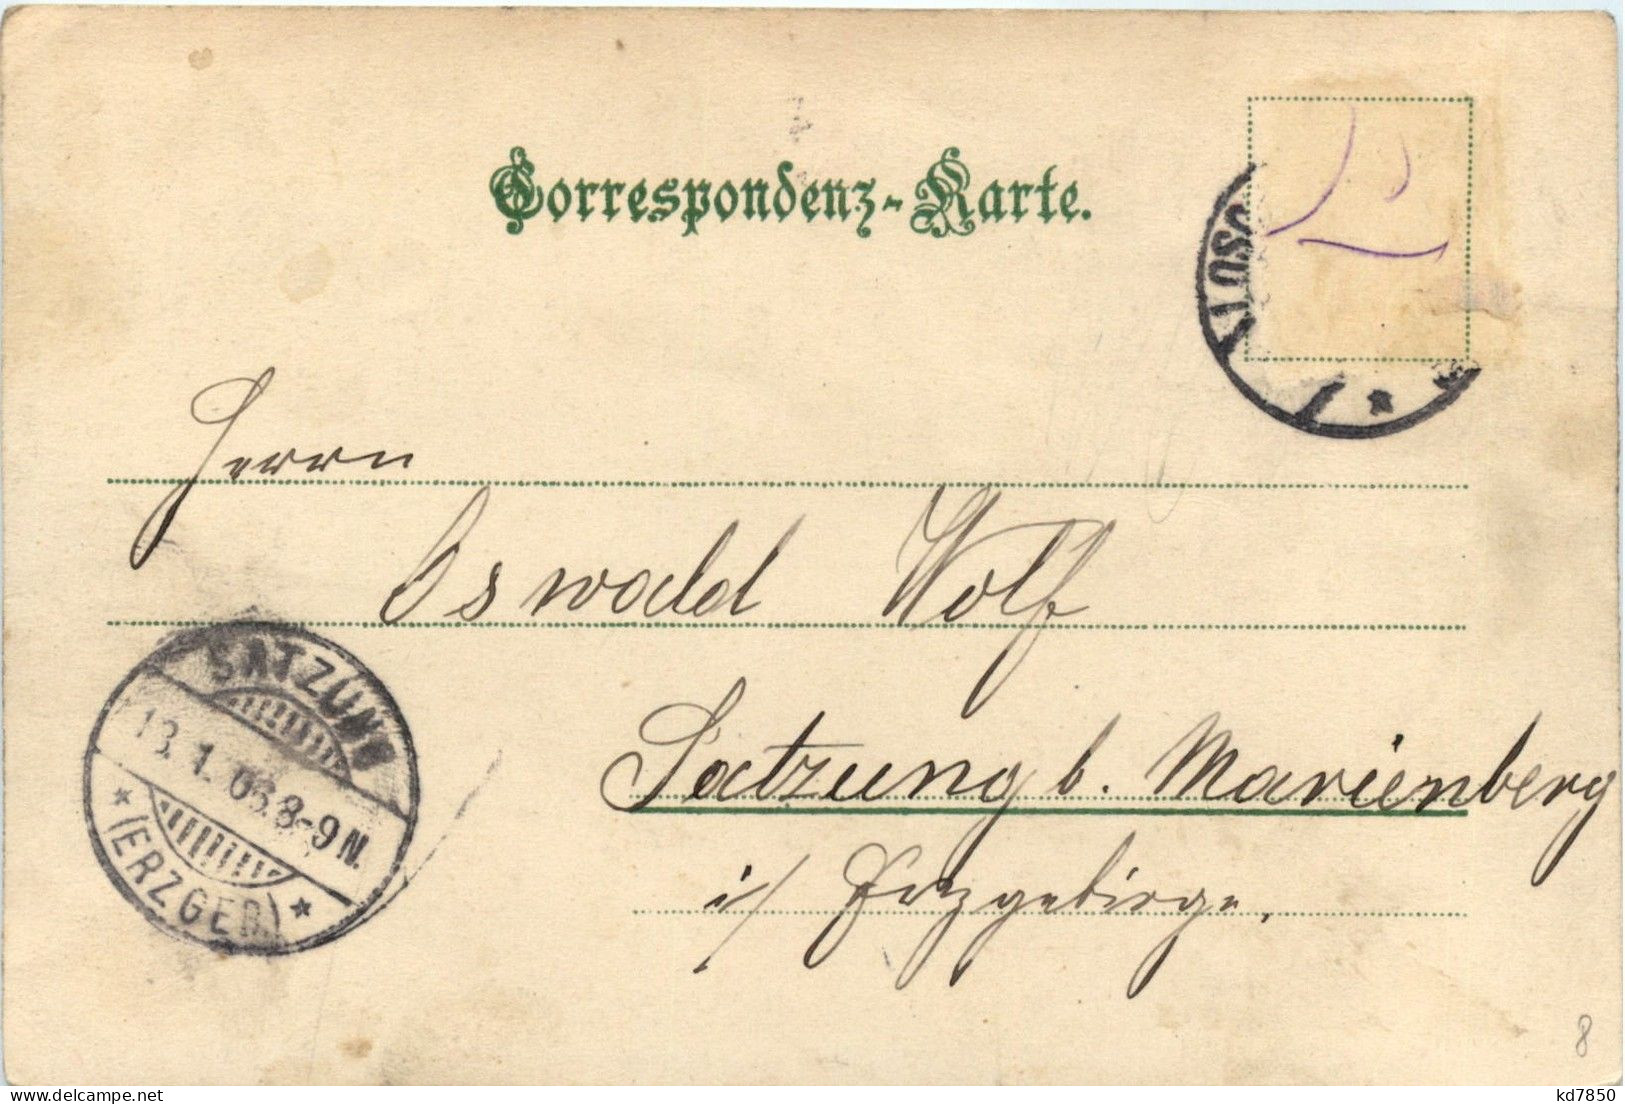 Correspondenz-Karte.
Herrn
Oswald Wolf
Satzung b. Marienberg
i/ Erzgebirge.
SATZUNG
13.1.03.8-9N.
(ERZGEB.)
8
kd7850